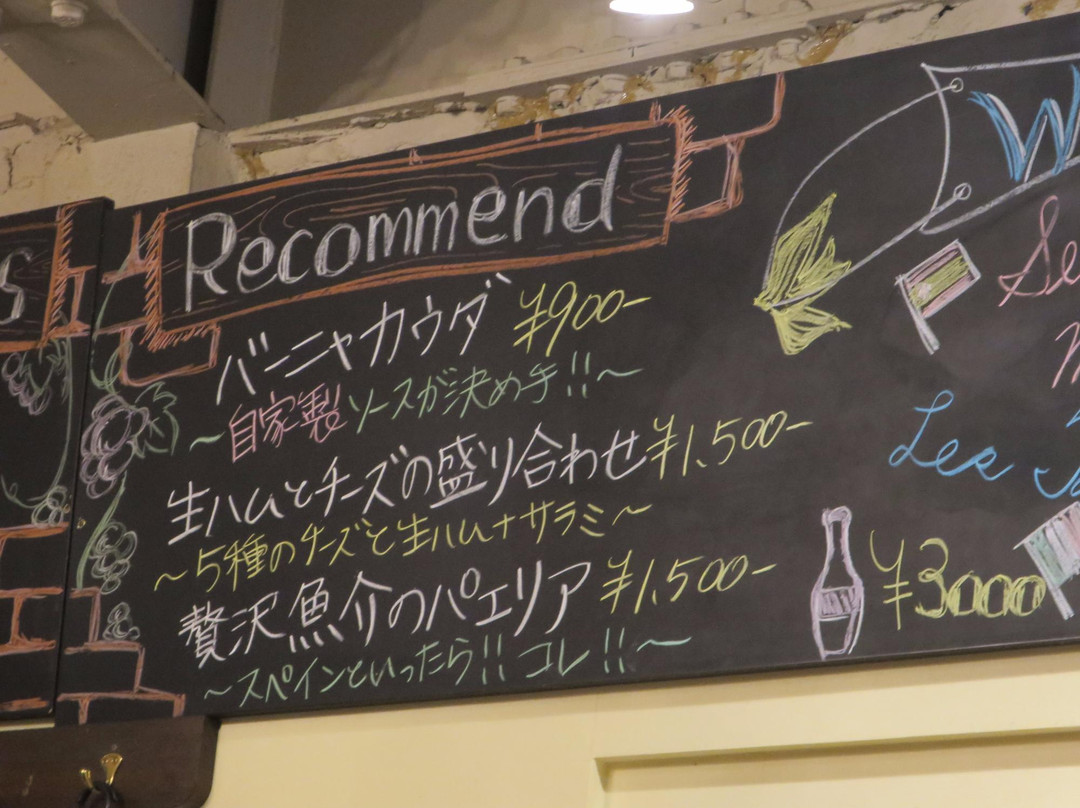 Recommend
バーニャカウダ ¥900-
～自家製ソースが決め手!!～
生ハムとチーズの盛り合わせ ¥1,500-
～5種のチーズと生ハム+サラミ～
贅沢魚介のパエリア ¥1,500-
～スペインといったら!! コレ!!～
s
W
Se
Les
¥3000